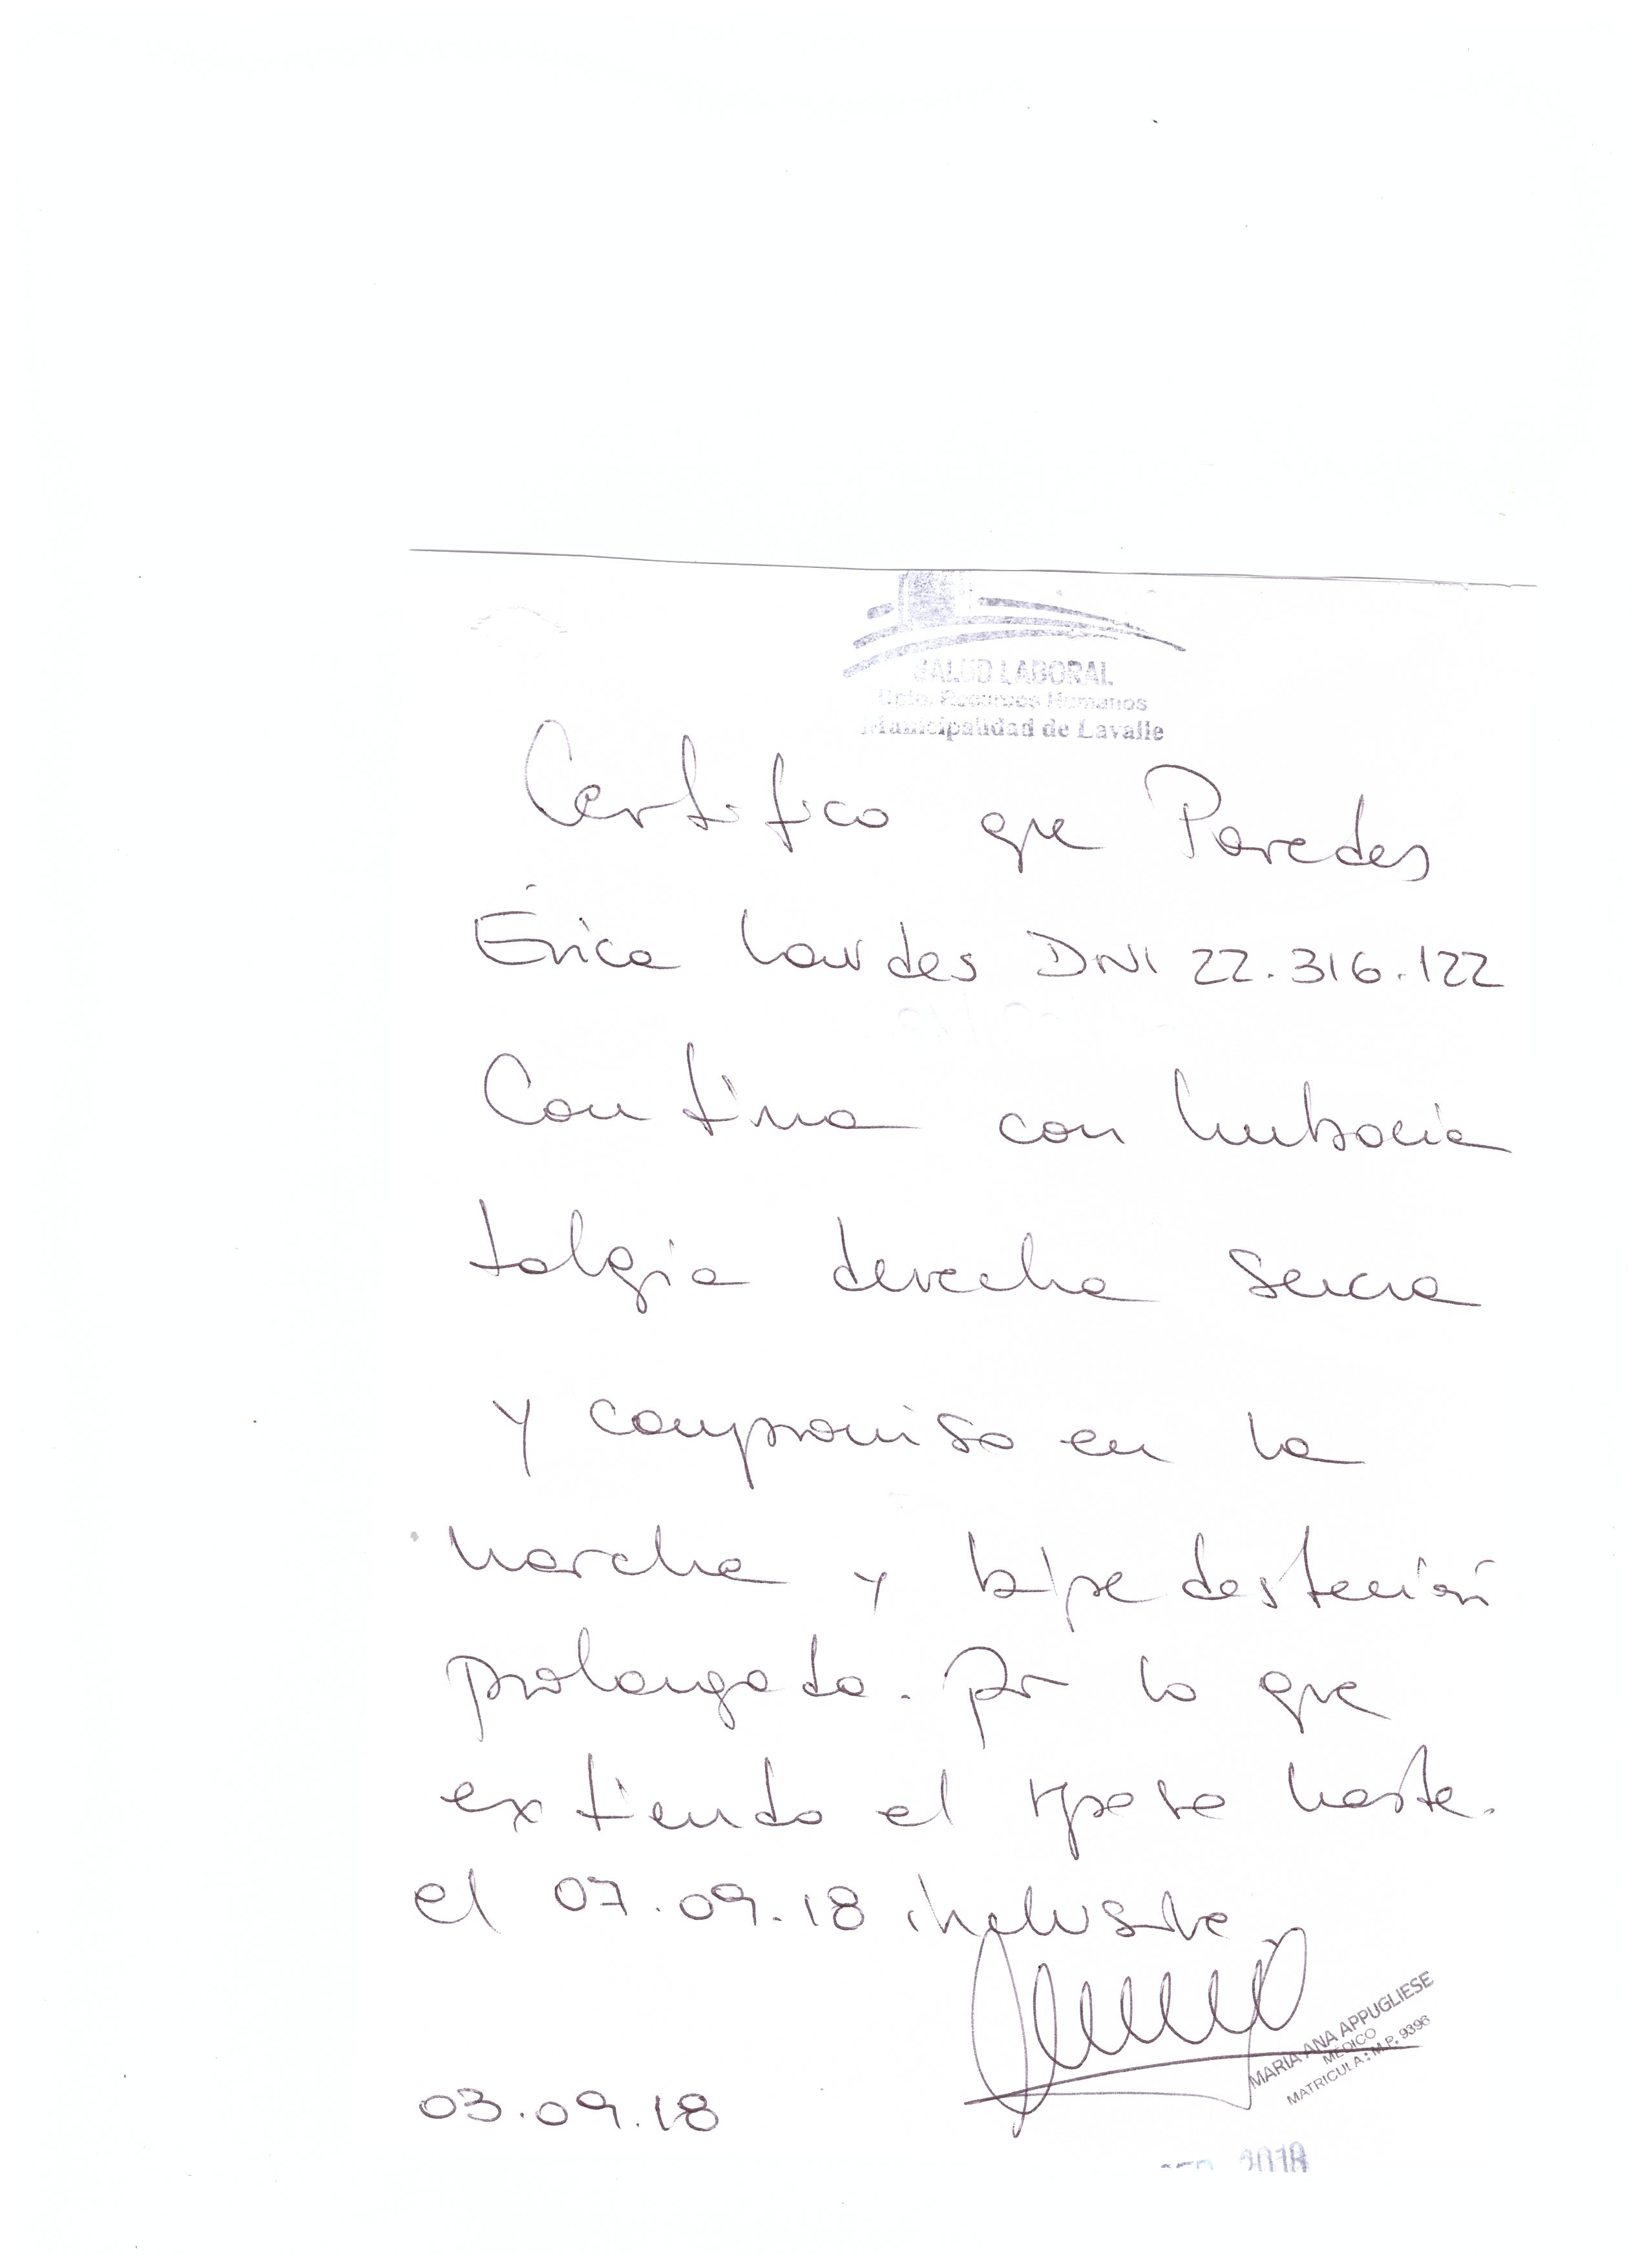 SALUD LABORAL
Dpto. Recursos Humanos
Municipalidad de Lavalle
Certifico que Paredes
Érica Lourdes DNI 22.316.122
Continua con lumbocia
talgia derecha severa
y compromiso en la
marcha y bipedestación
prolongada. por lo que
extiendo el reposo hasta
el 07.09.18 inclusive
MARIA ANA APPUGLIESE
MEDICO
MATRICULA: M.P. 9396
03.09.18
2018